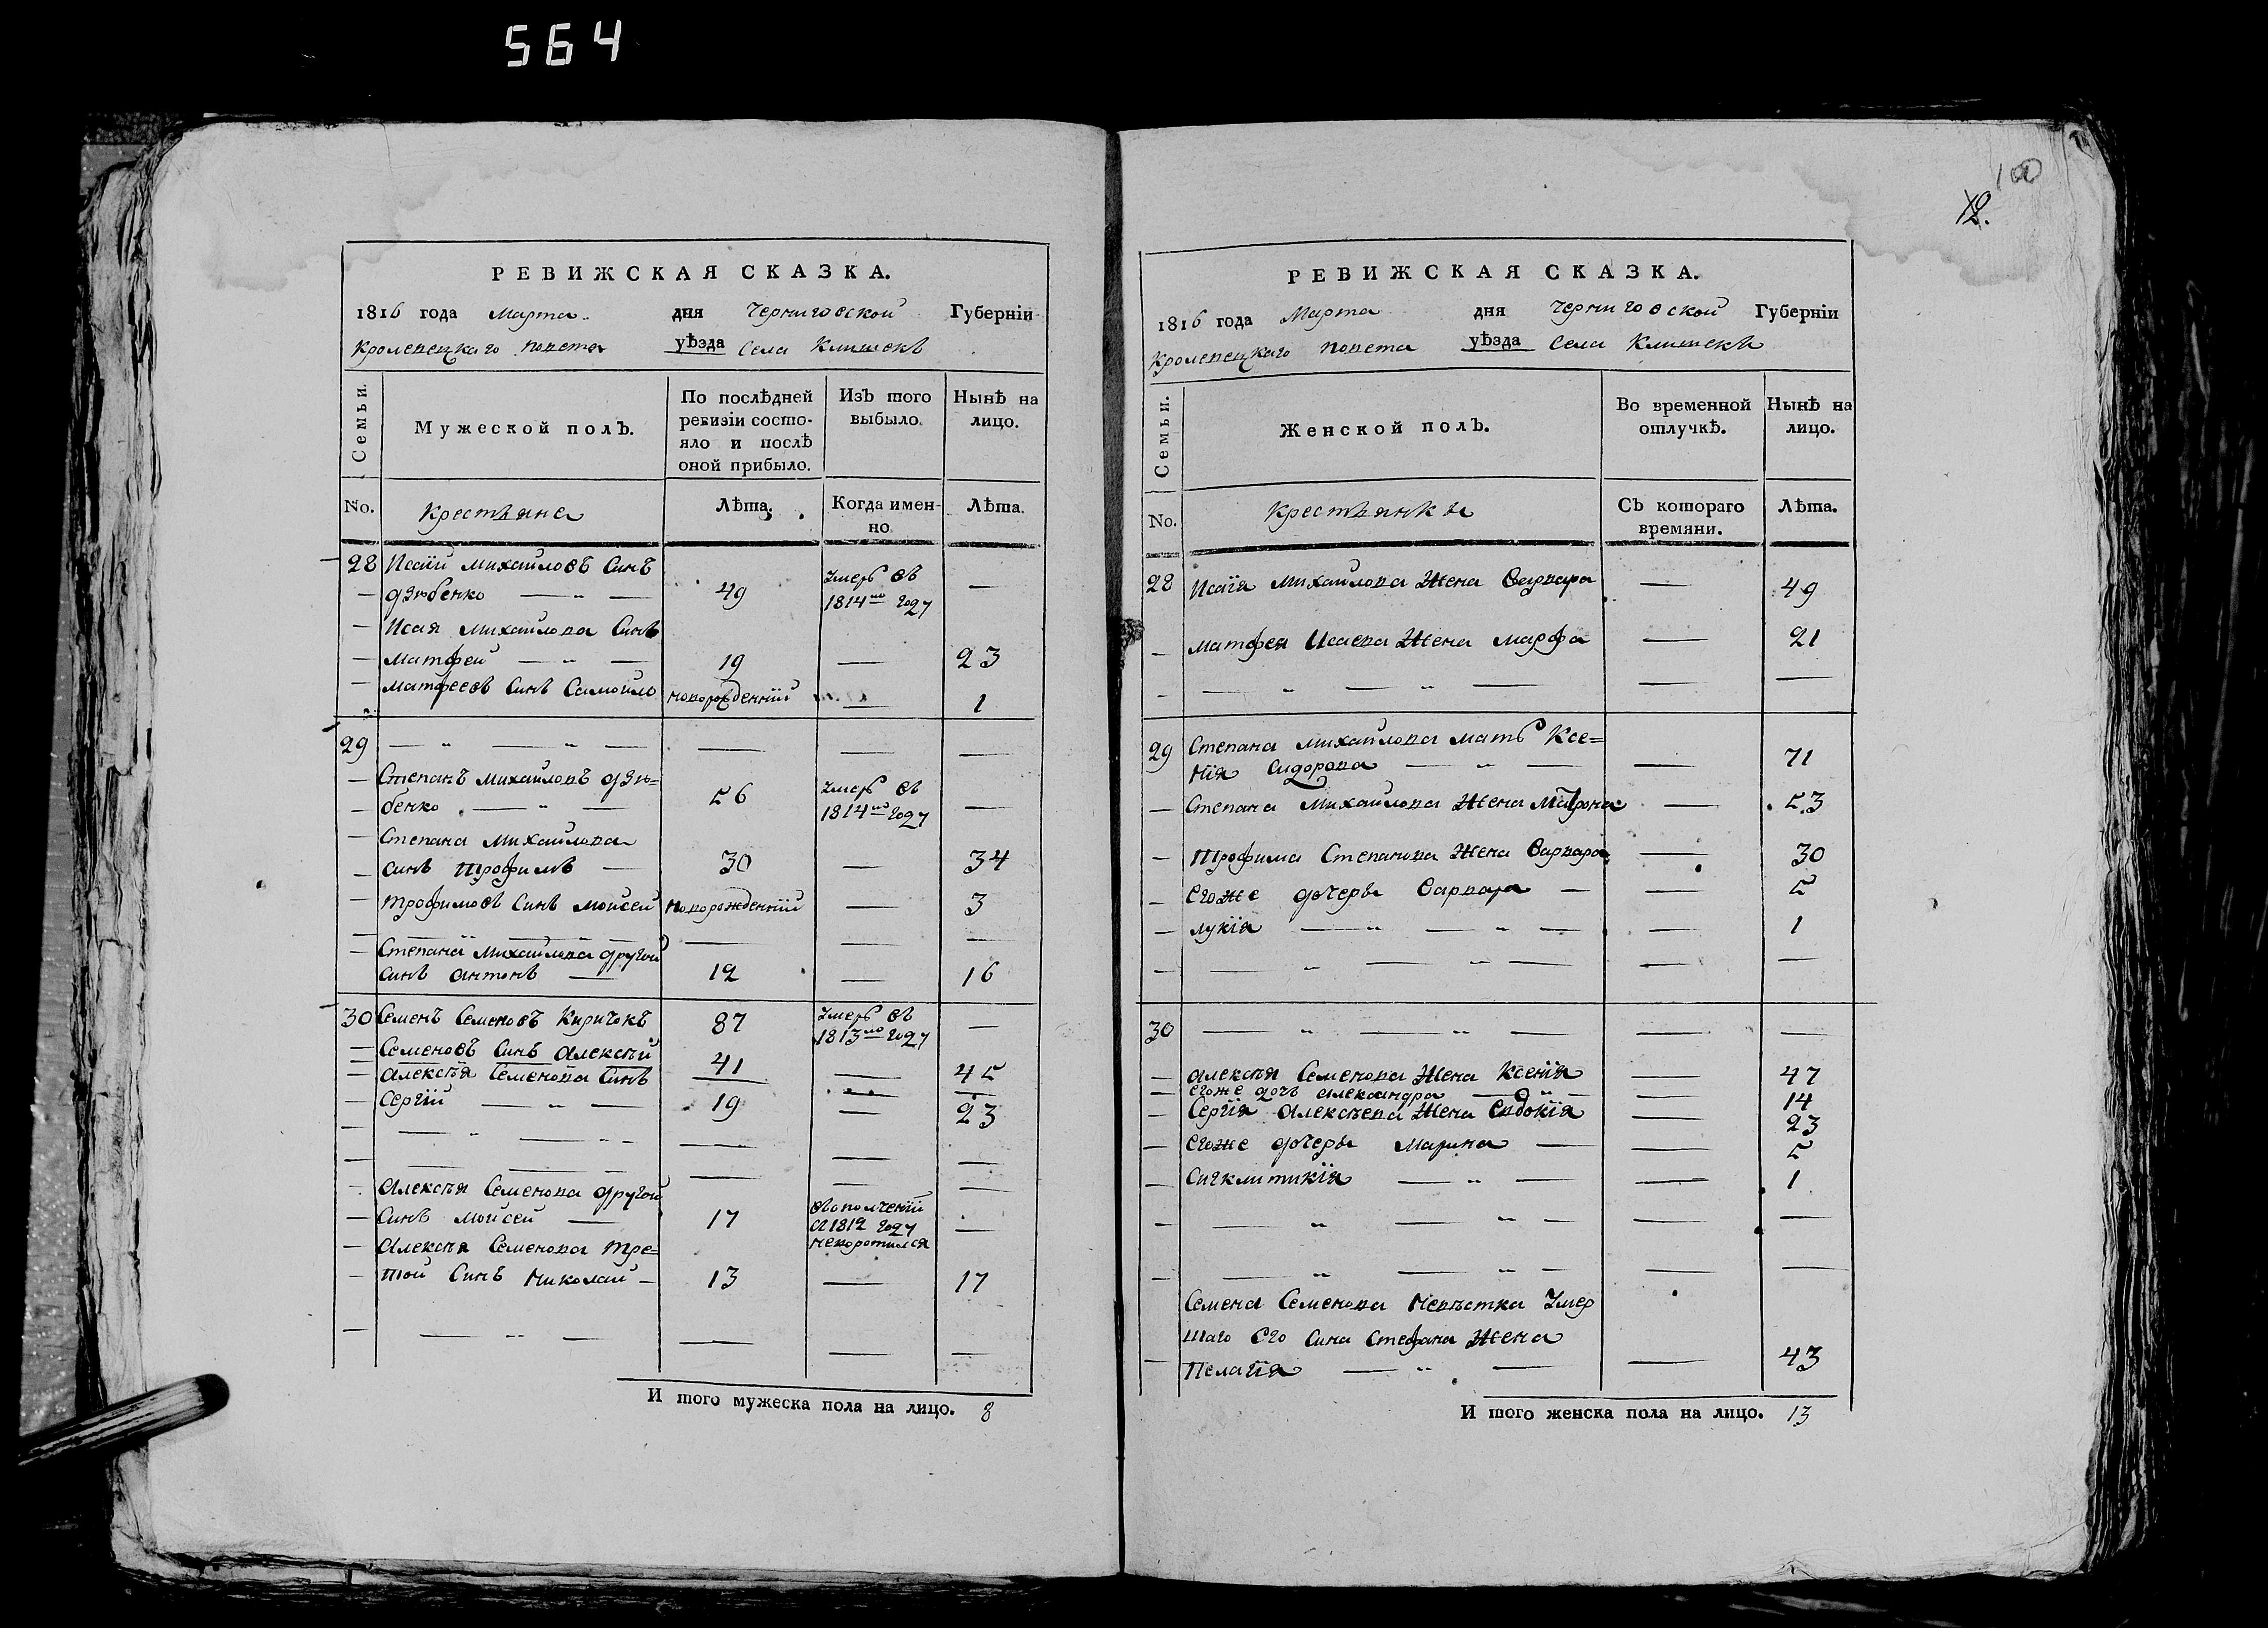 564
100
12.
РЕВИЖСКАЯ СКАЗКА.
1816 года Марта дня Черниговской Губернїи
Кролевецкаго повета уѣзда Села Клишекъ
Семьи.
Мужеской полъ.
По послѣдней ревизїи состояло и послѣ оной прибыло.
Изъ того выбыло.
Нынѣ на лицо.
No.
Крестьяне
Лѣта.
Когда именно
Лѣта.
28 Исаїй Михайловъ Синъ
Дзюбенко 49 Умеръ въ 1814мъ году —
Исая Михайлова Синъ
Матфей 19 — 23
Матфеевъ Синъ Самойло новорожденнїй — 1
29
Степанъ Михайловъ Дзю=
бенко 56 Умеръ въ 1814мъ году —
Степана Михайлова
Синъ Трофимъ 30 — 34
Трофимовъ Синъ Мойсей новорожденнїй — 3
Степана Михайлова другой
Синъ Антонъ 12 — 16
30 Семенъ Семеновъ Киричокъ 87 Умеръ въ 1813мъ году —
Семеновъ Синъ Алексѣй 41 — 45
Алексѣя Семенова Синъ
Сергїй 19 — 23
Алексѣя Семенова другой
Синъ Мойсей 17 въ ополченїи съ 1812 году неворотился —
Алексѣя Семенова тре=
тїй Синъ Николай 13 — 17
И того мужеска пола на лицо. 8
РЕВИЖСКАЯ СКАЗКА.
1816 года Марта дня Черниговской Губернїи
Кролевецкаго повета уѣзда Села Клишекъ
Семьи.
Женской полъ.
Во временной отлучкѣ.
Нынѣ на лицо.
No.
Крестьянки
Съ котораго времяни.
Лѣта.
28 Исаїя Михайлова Жена Варвара — 49
Матфея Исаева Жена Марфа — 21
29 Степана Михайлова мать Ксе=
нїя Сидорова — 71
Степана Михайлова Жена Матрона — 53
Трофима Степанова Жена Варвара — 30
Егоже дочеры Варвара — 5
Лукїя — 1
30
Алексѣя Семенова Жена Ксенїя — 47
Егоже дочь Александра — 14
Сергїя Алексѣева Жена Евдокїя — 23
Егоже дочеры Марина — 5
Сигклитикїя — 1
Семена Семенова Невѣстка Умер
шаго Его Сина Стефана Жена
Пелагїя — 43
И того женска пола на лицо. 13